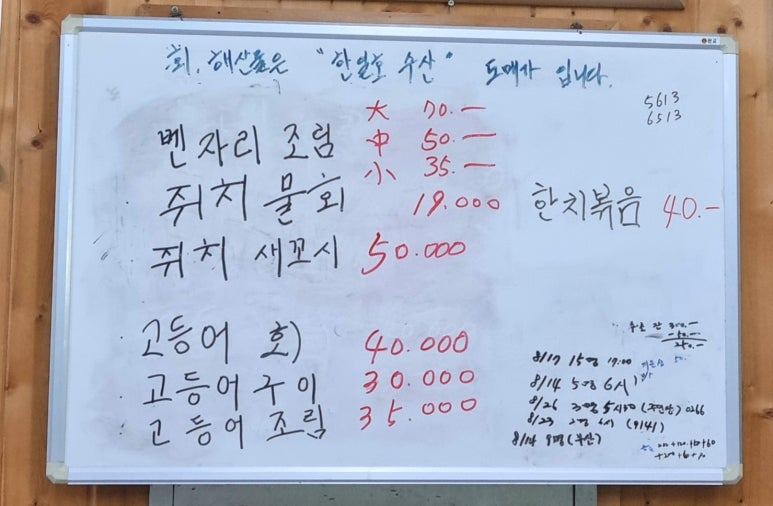 회, 해산물은 "한일호 수산" 도매가 입니다.
5613
6513
벤자리 조림 大 70.—
中 50.—
小 35.—
쥐치 물회 19.000
한치볶음 40.—
쥐치 새꼬시 50.000
고등어 회 40.000
고등어구이 30.000
고등어 조림 35.000
300.—
-50.—
250.—
8/17 15명 19:00
8/14 5명 6시
8/26 3명 5시30 0266
8/23 2명 6시 (9141)
8/14 9명 (부산)